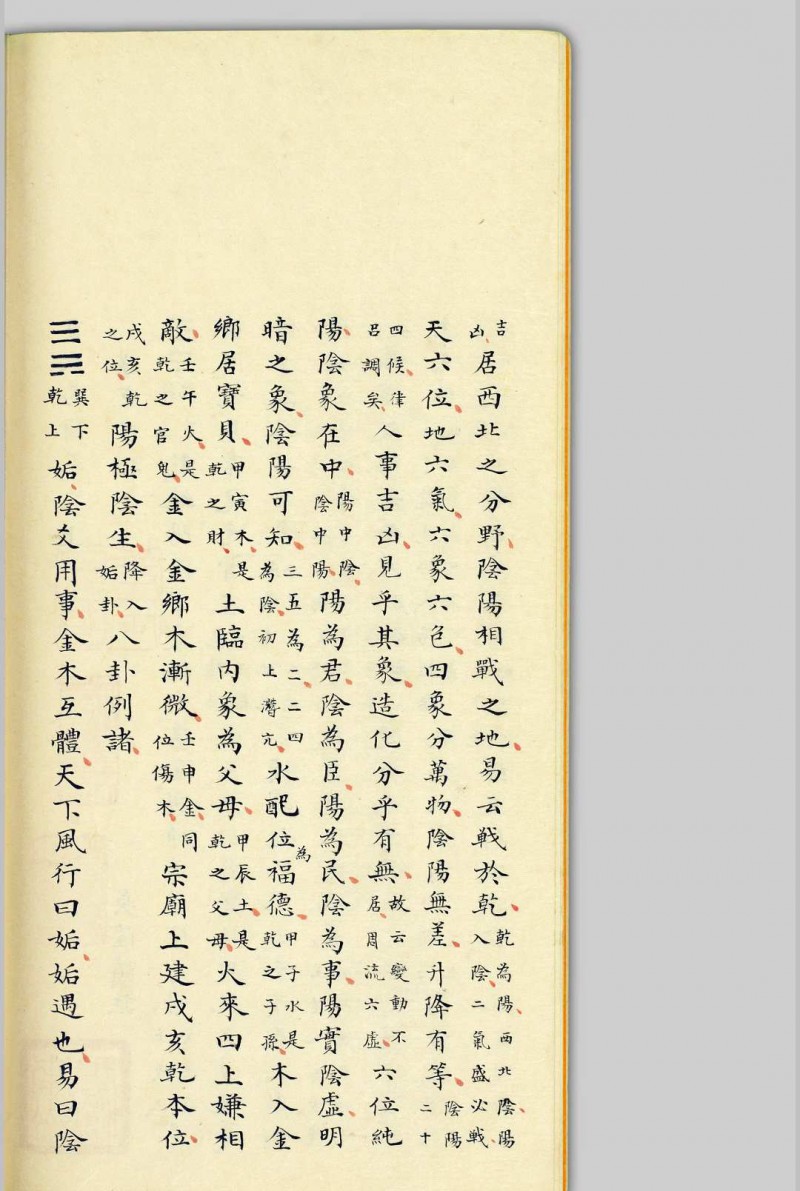 吉凶居西北之分野陰陽相戰之地易云戰於乾乾為陽西北陰陽入陰二氣盛必戰
天六位地六氣六象六色四象分萬物陰陽無差升降有等陰陽二十
四候律呂調矣人事吉凶見乎其象造化分乎有無故云變動不居周流六虛六位純
陽陰象在中陽中陰陰中陽陽為君陰為臣陽為民陰為事陽實陰虛明
暗之象陰陽可知三五為二二四為陰初上潛亢水配位為福德甲子水是乾之子孫木入金
鄉居寶貝甲寅木是乾之財土臨內象為父母甲辰土是乾之父母火來四上嫌相
敵壬午火是乾之官鬼金入金鄉木漸微壬申金同位傷木宗廟上建戌亥乾本位
戌亥乾之位陽極陰生降入姤卦八卦例諸
☰☴巽下乾上姤陰爻用事金木互體天下風行曰姤姤遇也易曰陰